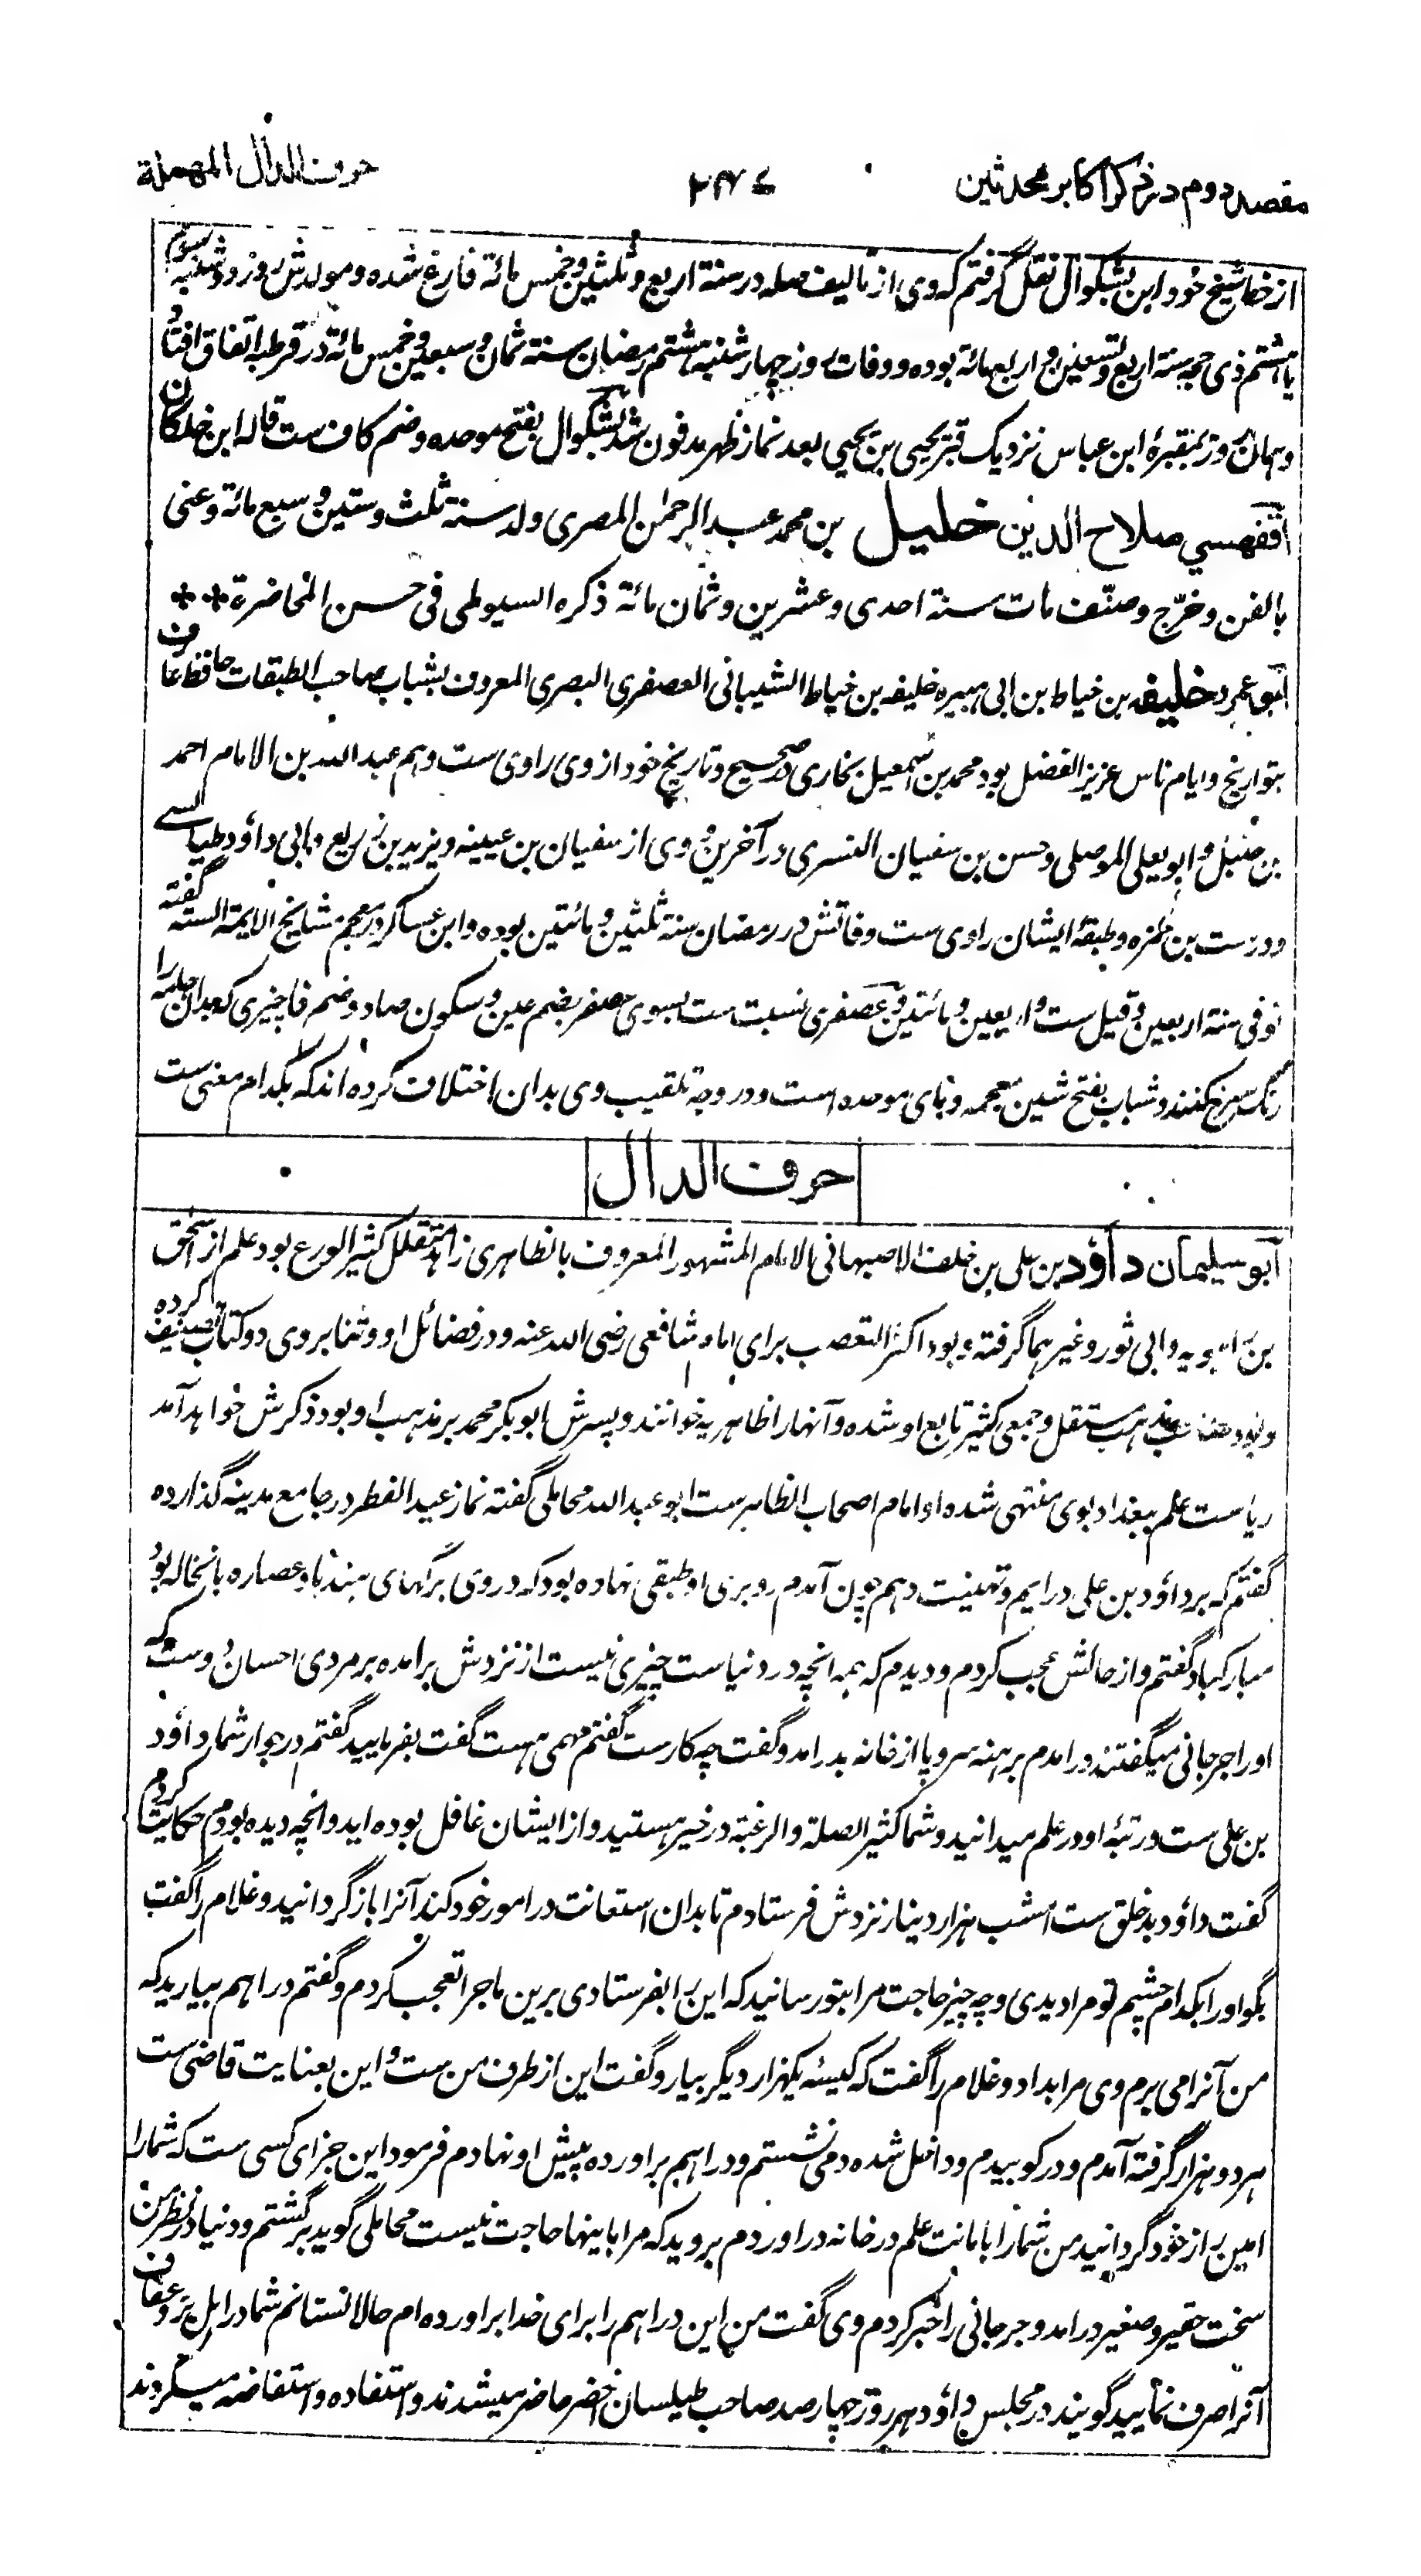 مقصد دوم در ذکر اکابر محدثین
۲۴۷
حرف الدال المهملة
از خط شیخ خود ابن بشکوال نقل گرفتم که وی از تالیف صله در سنة اربع و ثلثین و خمس مائة فارغ شده و مولدش روز دوشنبه سوم
یا هشتم ذی حجه سنة اربع و تسعین و اربعمائة بوده و وفات روز چهارشنبه هشتم رمضان سنة ثمان و سبعین و خمس مائة در قرطبه اتفاق افتاد
و همان روز بمقبرهٔ ابن عباس نزدیک قبر یحیی بن یحیی بعد نماز ظهر مدفون شد بشکوال بفتح موحده و ضم کاف ست قاله ابن خلکان
اقفهسي صلاح الدین خلیل بن محمد عبد الرحمن المصری ولد سنة ثلث و ستین و سبع مائة و عنی
بالفن و خرّج و صنّف مات سنة احدی و عشرین و ثمان مائة ذکره السیوطی فی حسن المحاضرة **
ابو عمرو خلیفه بن خیاط بن ابی هبیره خلیفه بن خیاط الشیبانی العصفری البصری المعروف بشباب صاحب الطبقات حافظ عارف
بتواریخ و ایام ناس عزیز الفضل بود محمد بن اسمعیل بخاری در صحیح و تاریخ خود از وی راوی ست و هم عبد الله بن الامام احمد
بن حنبل و ابو یعلی الموصلی و حسن بن سفیان النسری در آخرین و وی از سفیان بن عیینه و یزید بن زریع و ابی داؤد طیالسی
و درست بن حمزه و طبقهٔ ایشان راوی ست وفاتش در رمضان سنة ثلثین و مائتین بوده و ابن عساکر در معجم مشایخ الایمة السته گفته
توفی سنة اربعین و قیل ست و اربعین و مائتین و عصفری نسبت ست بسوی عصفر بضم عین و سکون صاد و ضم فا چیزی که بدان جامه را
رنگ سرخ کنند و شباب بفتح شین معجمه و بای موحده است و در وجه تلقیب وی بدان اختلاف کرده اند که بکدام معنی ست
حرف الدال
ابو سلیمان داؤد بن علی بن خلف الاصبهانی الامام المشهور المعروف بالظاهری زاهد متقلل کثیر الورع بود علم از اسحق
بن راهویه و ابی ثور و غیر هما گرفته و بود اکثر التعصب برای امام شافعی رضی الله عنه و در فضائل او و ثنا بر وی دو کتاب تصنیف کرده
و بود صاحب مذهب مستقل و جمعی کثیر تابع او شده و آنها را ظاهریه خوانند و پسرش ابو بکر محمد بر مذهب او بود ذکرش خواهد آمد
ریاست علم ببغداد بوی منتهی شده او امام اصحاب الظاهر ست ابو عبد الله محاملی گفته نماز عید الفطر در جامع مدینه گذارده
گفتم که بر داؤد بن علی درایم و تهنیت دهم چون آمدم روبروی او طبقی نهاده بود که در وی برگهای هندبا و عصاره با نخاله بود
مبارکباد گفتم و از حالش عجب کردم و دیدم که همه انچه در دنیاست چیزی نیست از نزدش برامده بر مردی احسان دوست که
او را جرجانی میگفتند درامدم برهنه سر و پا از خانه بدرامد و گفت چه کارست گفتم مهمی هست گفت بفرمایید گفتم در جوار شما داؤد
بن علی ست و رتبهٔ او در علم میدانید و شما کثیر الصلة و الرغبة در خیر هستید و از ایشان غافل بوده اید و انچه دیده بودم حکایت کردم
گفت داؤد بدخلق ست امشب هزار دینار نزدش فرستادم تا بدان استعانت در امور خود کند آنرا باز گردانید و غلام را گفت
بگو او را بکدام چشم تو مرا دیدی و چه چیز حاجت مرا بتو رسانید که این را بفرستادی برین ماجرا تعجب کردم و گفتم دراهم بیارید که
من آنرا می برم وی مرا بداد و غلام را گفت که کیسهٔ یکهزار دیگر بیار و گفت این از طرف من ست و این بعنایت قاضی ست
هر دو هزار گرفته آمدم و در کوبیدم و داخل شده دمی نشستم و دراهم براورده پیش او نهادم فرمود این جزای کسی ست که شما را
امین راز خود گردانید من شما را بامانت علم در خانه دراوردم بروید که مرا باینها حاجت نیست محاملی گوید برگشتم و دنیا در نظر من
سخت حقیر و صغیر درامد و جرجانی را خبر کردم وی گفت من این دراهم را برای خدا براورده ام حالا نستانم شما در اهل بر و عفاف
آنرا صرف نمایید گویند در مجلس داؤد هر روز چهار صد صاحب طیلسان اخضر حاضر میشدند و استفاده و استفاضه میکردند